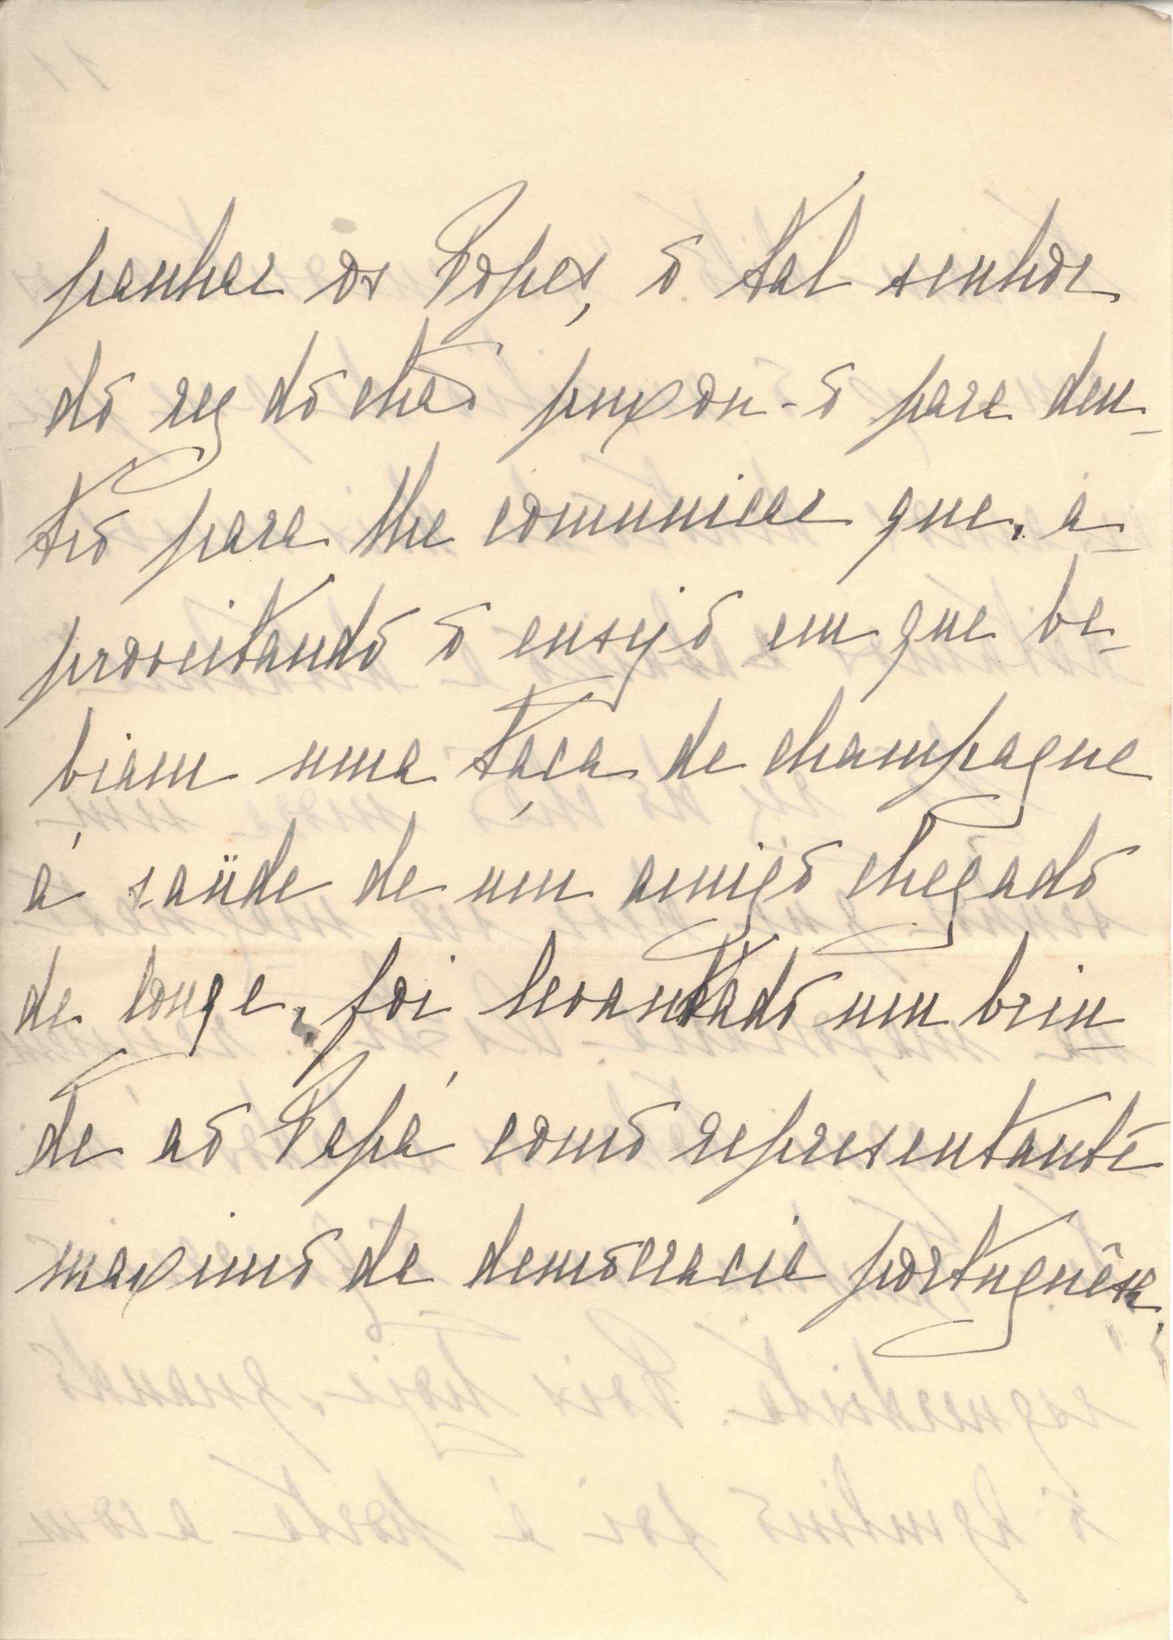 panhar os Lopes, o tal senhor
do rez do chão puxou-o para den-
tro para lhe comunicar que, a-
proveitando o ensejo em que be-
biam uma taça de champagne
á saüde de um amigo chegado
de longe, foi levantado um brin-
de ao Papá como representante
maximo da democracia portuguêsa,